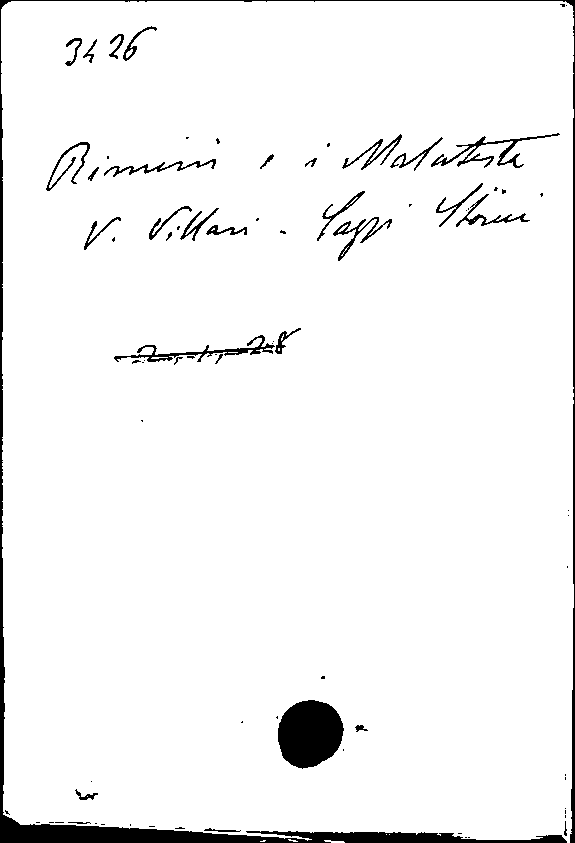 3426
Rimini e i Malatesta
V. Villari - Saggi Storici
2.1.28